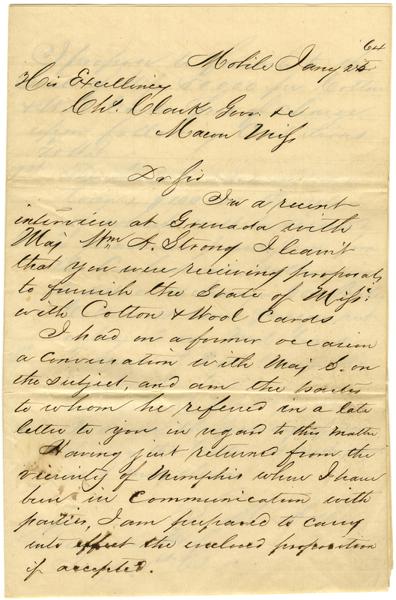 64
Mobile Jany 25
His Excellency
Chs. Clark Gov. &c
Macon Miss
Dr Sir
In a recent
interview at Grenada with
Maj Wm A. Strong I learnt
that you were receiving proposals
to furnish the State of Miss.
with Cotton & Wool Cards
I had on a former occasion
a conversation with Maj S. on
the subject, and am the parties
to whom he refered in a late
letter to you in regard to this matter
Having just returned from the
vicinity of Memphis where I have
been in communication with
parties, I am prepared to carry
into effect the enclosed proposition
if accepted.